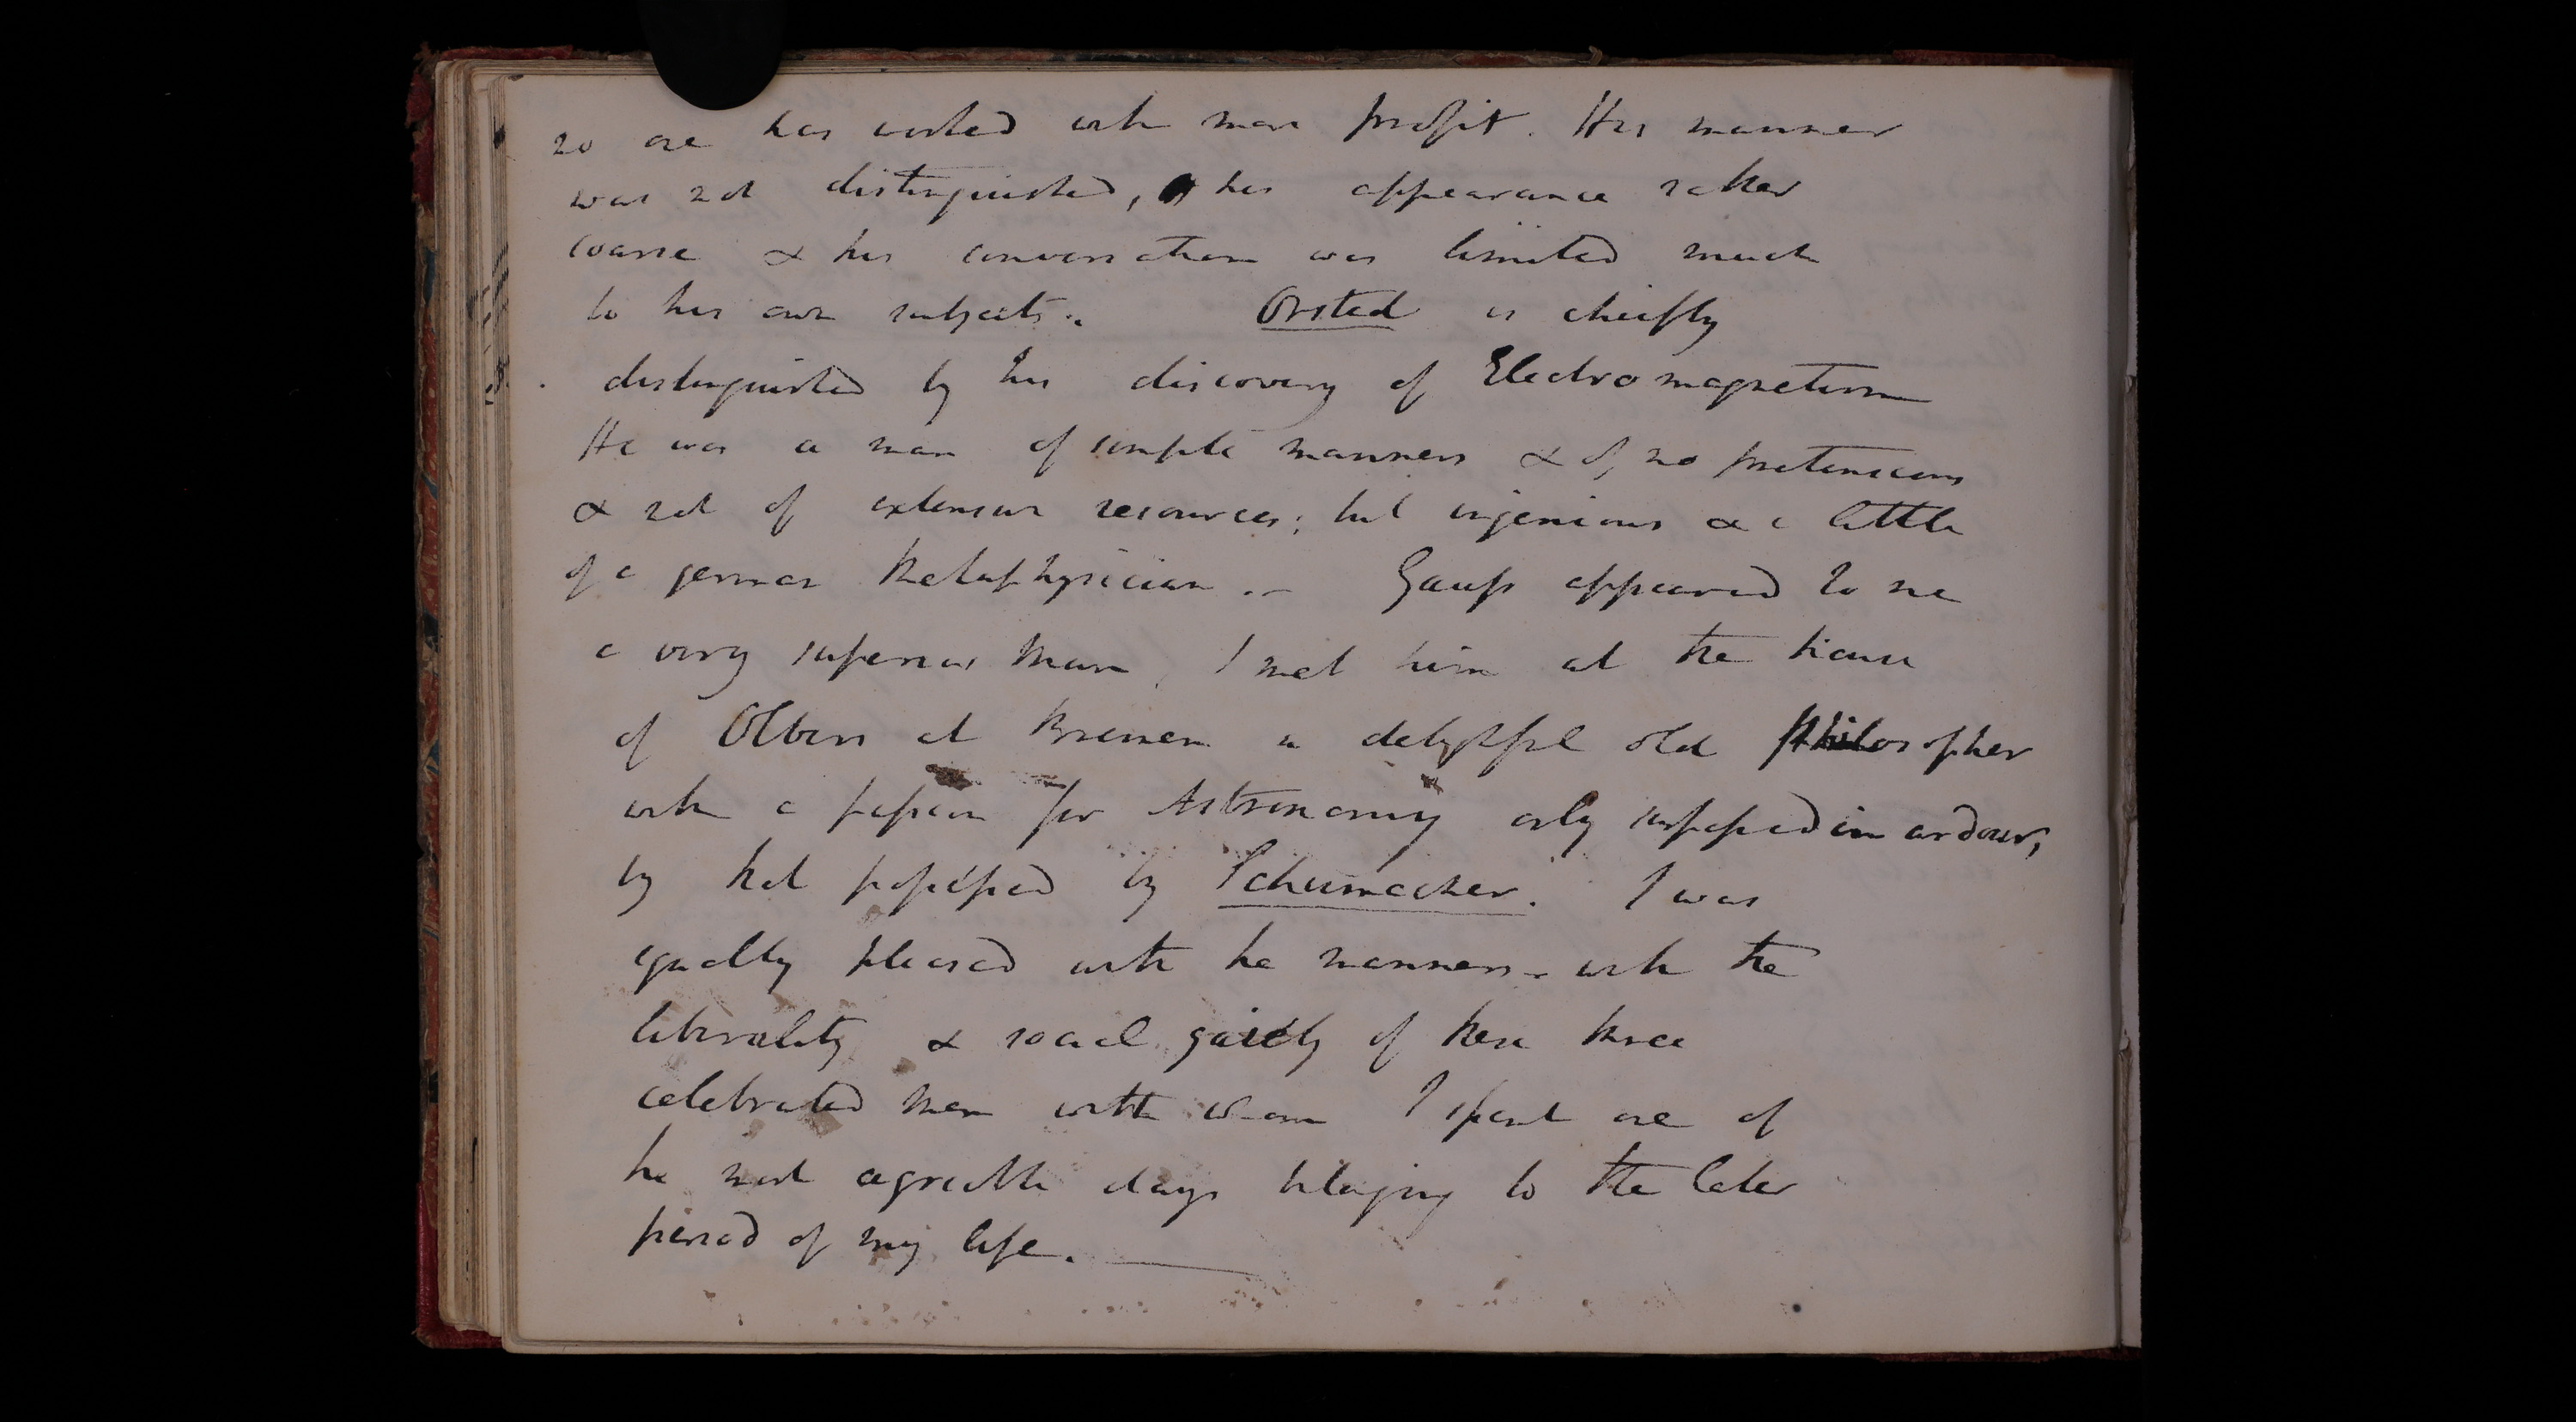 no one has worked with more profit. His manner
was not distinguished, his appearance rather
coarse & his conversation was limited much
to his own subjects.
Orsted is cheifly
distinguished by his discovery of Electromagnetism
He was a man of simple manners & of no pretensions
& not of extensive resources; but ingenious & a little
of a german Metaphysician. – Gauss appeared to me
a very superior Man, I met him at the house
of Olbers at Bremen a delightful old Philosopher
with a passion for Astronomy only surpassed in ardour,
by that possessed by Schumacher. I was
equally pleased with the manners – with the
liberality & social gaiety of these three
celebrated men with whom I spent one of
the most agreable days belonging to the later
period of my life.